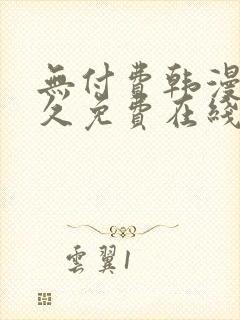 無付費韩漫
久免費在綫
雲翼1